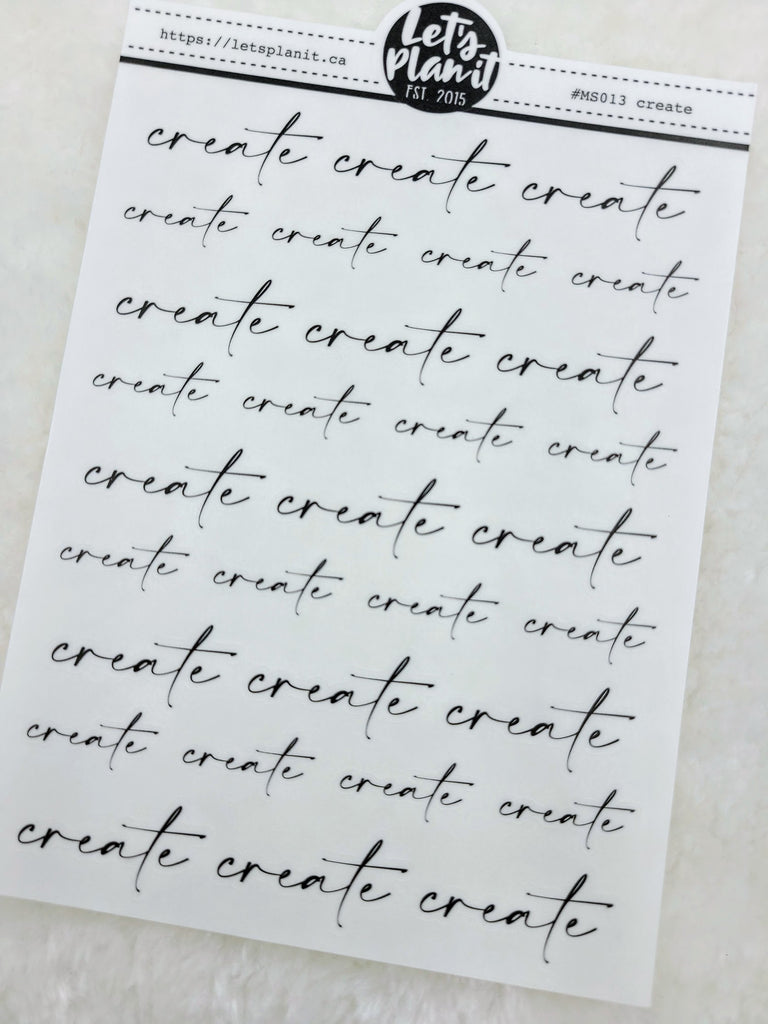 https://letsplanit.ca
Let's
Plan it
EST. 2015
#MS013 create
create create create
create create create create
create create create
create create create create
create create create
create create create create
create create create
create create create create
create create create